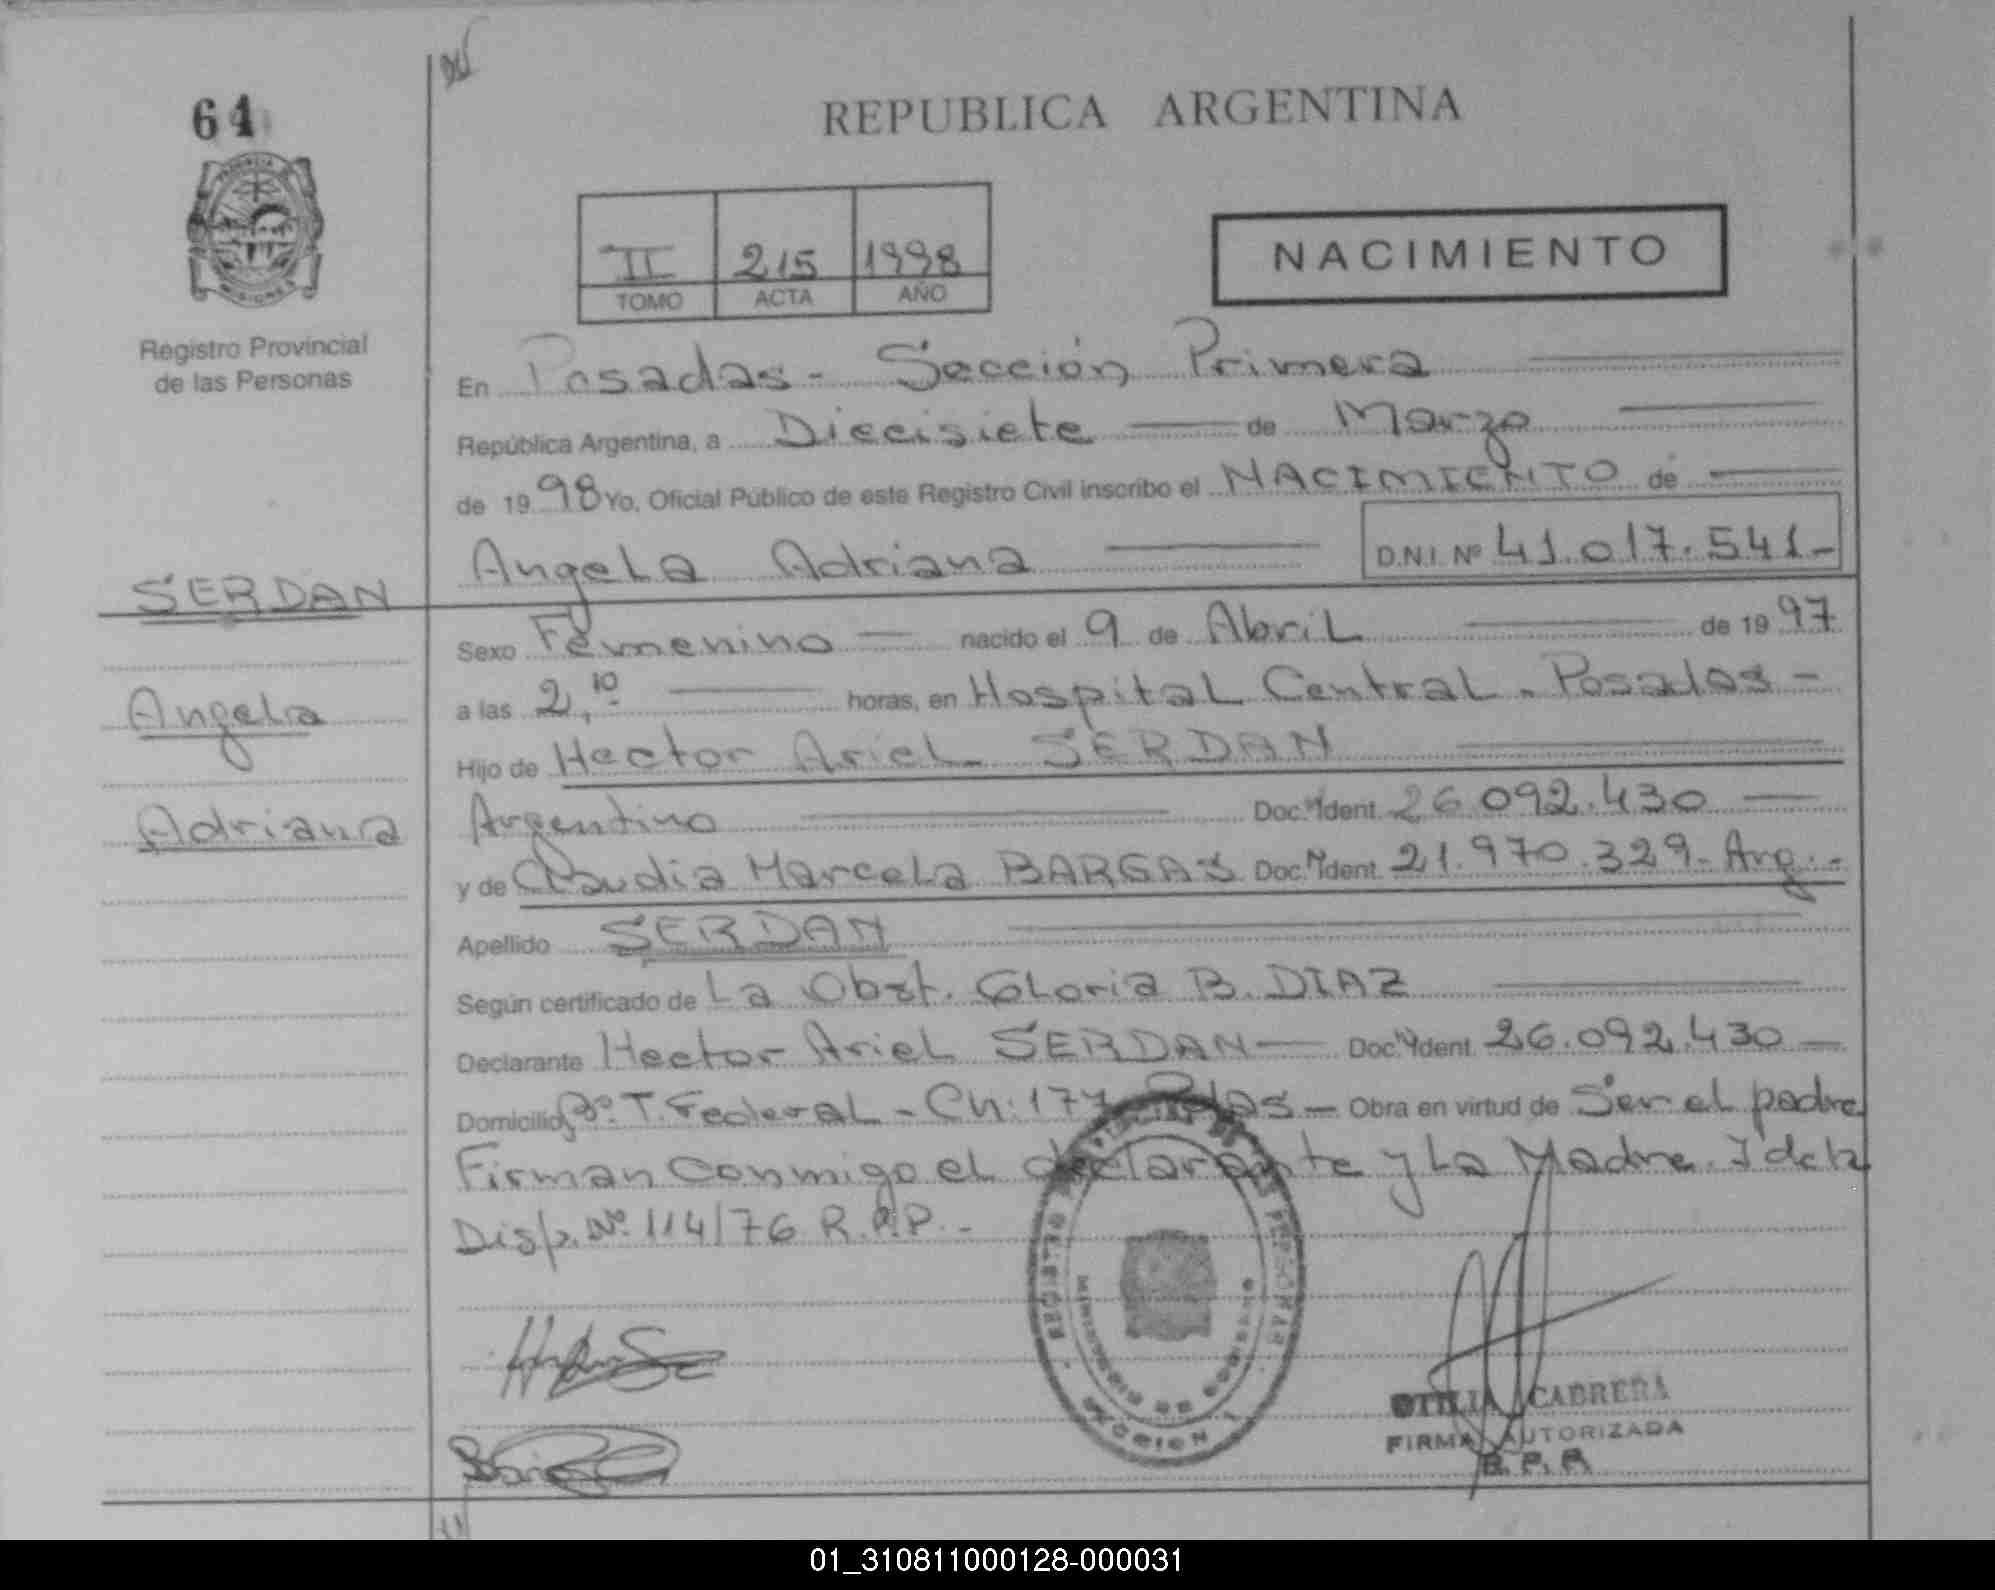 64
REPUBLICA ARGENTINA
II 215 1998
TOMO ACTA AÑO
NACIMIENTO
PROVINCIA
MISIONES
Registro Provincial
de las Personas
En Posadas - Sección Primera
República Argentina, a Diecisiete de Marzo
de 1998 Yo, Oficial Público de este Registro Civil inscribo el NACIMIENTO de
Angela Adriana D.N.I. Nº 41.017.541-
SERDAN
Angela
Adriana
Sexo Femenino nacido el 9 de Abril de 1997
a las 2,10 horas, en Hospital Central - Posadas -
Hijo de Hector Ariel SERDAN
Argentino Doc. Ident. 26.092.430
y de Claudia Marcela BARGAS Doc. Ident. 21.970.329- Arg.-
Apellido SERDAN
Según certificado de La Obst. Gloria B. DIAZ
Declarante Hector Ariel SERDAN Doc. Ident. 26.092.430
Domicilio Bº T. Federal - Ch: 177 Pdas - Obra en virtud de Ser el padre
Firman conmigo el declarante y La Madre.
Disp. Nº 114/76 R.P.P.-
REGISTRO PROVINCIAL DE LAS PERSONAS
MINISTERIO DE GOBIERNO
MISIONES
OTILIA CABRERA
FIRMA AUTORIZADA
R. P. P.
01_310811000128-000031